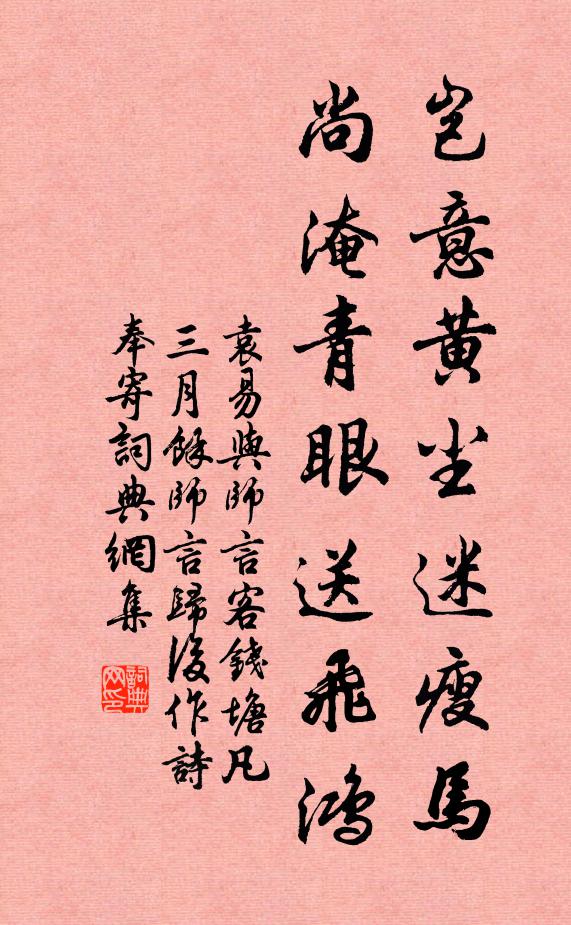 豈意黄尘迷瘦馬
尚淹青眼送飛鴻
袁易與師言客錢塘凡
三月餘師言歸後作詩
奉寄詞典網集
詞典
网印